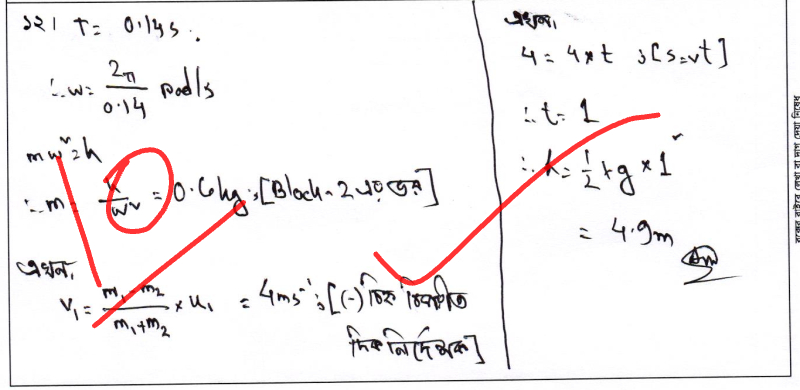 ১২। T = 0.14s.
∴ω = 2π/0.14 rad/s
mω² = k
∴m = k/ω² = 0.6kg ;[Block-2 এর ভর]
এখন,
V₁ = (m₁-m₂)/(m₁+m₂) × u₁ = 4ms⁻¹ ;[(-) চিহ্ন বিপরীত
দিক নির্দেশক]
এখন,
4 = 4×t ;[s=vt]
∴t = 1
∴h = 1/2 × g × 1²
= 4.9m
Ans